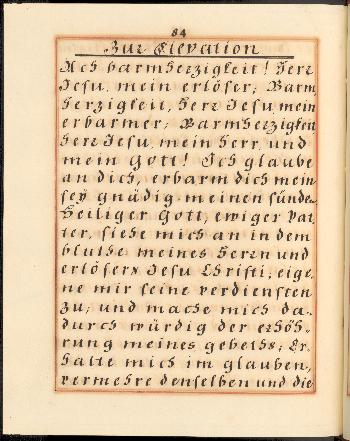 84
Zur Elevation
Ach barmherzigkeit! Herr
Jesu, mein erlöser; Barm
herzigkeit, Herr Jesu, mein
erbarmer; Barmherzigkeit
Herr Jesu, mein Herr, und
mein Gott! Ich glaube
an dich, erbarm dich mein
sey gnädig meinen sünden
Heiliger Gott, ewiger Vat-
ter, siehe mich an in dem
bluthe meines Heren und
erlösers Jesu Christi, eige-
ne mir seine verdiensten
zu, und mache mich da-
durch würdig der erhöh-
rung meines gebeths; Er-
halte mich im glauben,
vermehre denselben und die